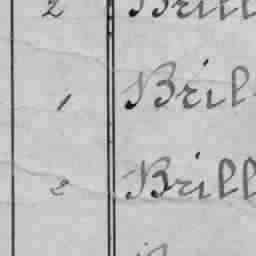 2 Brill
1 Bril
2 Brill